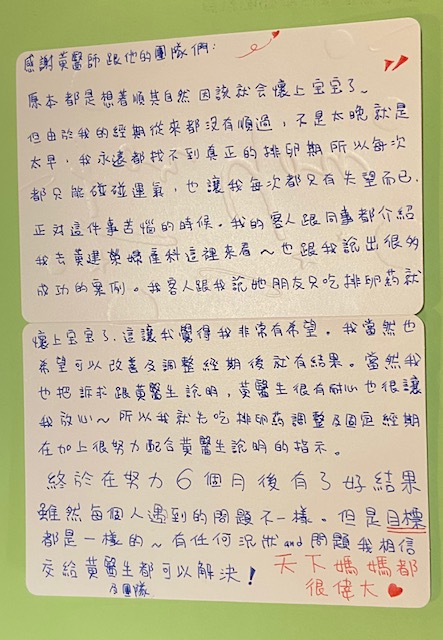 感謝黃醫師跟他的團隊們：
原本都是想著順其自然 因該就會懷上宝宝了～
但由於我的經期從來都沒有順過，不是太晚就是
太早，我永遠都找不到真正的排卵期所以每次
都只能碰碰運氣，也讓我每次都只有失望而已.
正对這件事苦惱的時候。我的客人跟同事都介紹
我去黃建榮婦產科這裡來看～也跟我說出很多
成功的案例。我客人跟我說她朋友只吃排卵药就
懷上宝宝了，這讓我覺得我非常有希望。我當然也
希望可以改善及調整經期後就有結果。當然我
也把訴求跟黃醫生說明，黃醫生很有耐心也很讓
我放心～所以我就先吃排卵药調整及固定經期
在加上很努力配合黃醫生說明的指示。
終於在努力6個月後有了好結果
雖然每個人遇到的問題不一樣。但是目標
都是一樣的～有任何況狀and問題我相信
交給黃醫生及團隊都可以解決！
天下媽媽都
很偉大